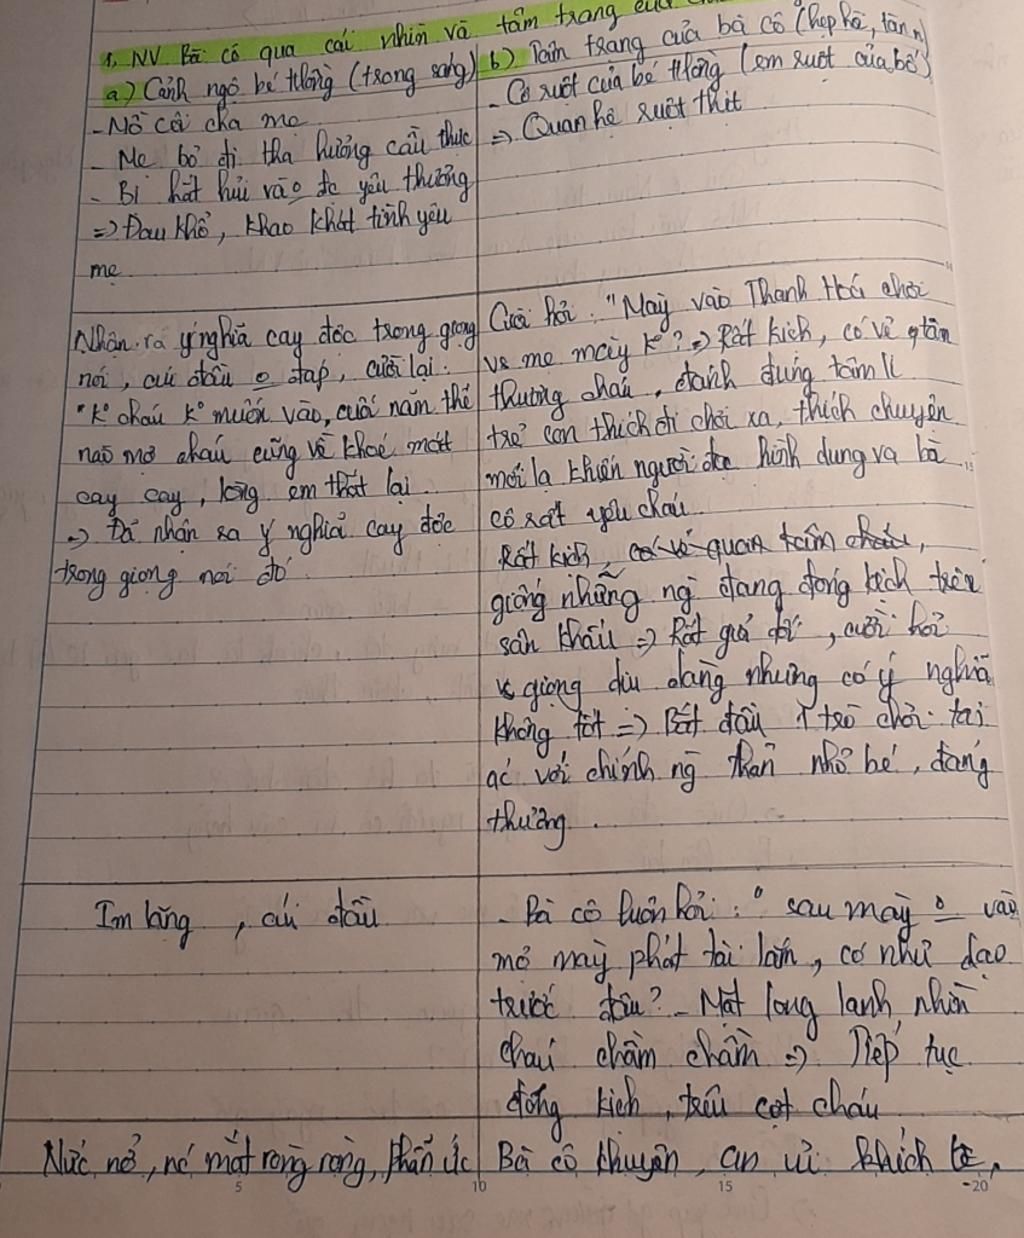 1, NV Bà cô qua cái nhìn và tâm trạng
a) Cảnh ngộ bé Hồng (trong sáng)
- Mồ côi cha mẹ
- Mẹ bỏ đi tha hương cầu thực
- Bị hắt hủi vào đc yêu thương
=> Đau khổ, khao khát tình yêu
mẹ
b) Tâm trạng của bà cô (hẹp hòi, tàn
- Cô ruột của bé Hồng (em ruột của bố)
=> Quan hệ ruột thịt
Nhận ra ý nghĩa cay độc trong giọng
nói, cúi đầu o đáp, cười lại:
"K° cháu k° muốn vào, cuối năm thế
nào mợ cháu cũng về khoé mắt
cay cay, lòng em thắt lại
=> Đã nhận ra ý nghĩa cay độc
trong giọng nói đó
Cười hỏi: "Mày vào Thanh Hoá chơi
vs mẹ mày k°? => Rất kịch, có vẻ qtâm
thương cháu, đánh đúng tâm lí
trẻ con thích đi chơi xa, thích chuyện
mới lạ khiến người đọc hình dung ra bà
cô rất yêu cháu.
Rất kịch, có vẻ quan tâm cháu,
giống những ng đang đóng kịch trên
sân khấu => Rất giả dối, cười hỏi
vs giọng dịu dàng nhưng có ý nghĩa
không tốt => Bắt đầu 1 trò chơi tai
ác với chính ng thân nhỏ bé, đáng
thương.
Im lặng, cúi đầu
- Bà cô luôn hỏi: "sau mày o vào
mợ mày phát tài lắm, có như dạo
trước đâu? - Mắt long lanh nhìn
cháu chằm chằm => Tiếp tục
đóng kịch, trêu cợt cháu
Nức nở, nc mắt ròng ròng, phẫn ức
Bà cô khuyên, an ủi khích lệ,
5 10 15 20